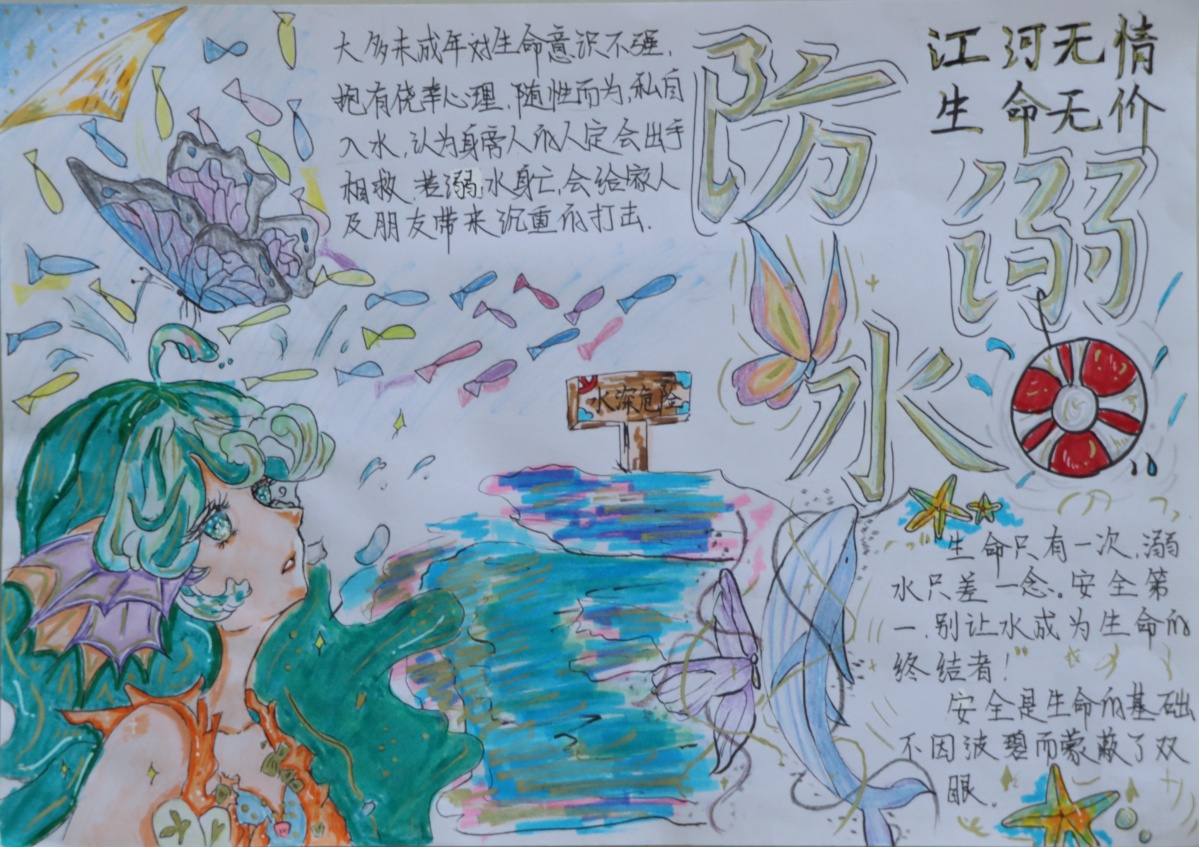 大多未成年对生命意识不强，
抱有侥幸心理，随性而为，私自
入水，认为身旁人的人定会出手
相救，若溺水身亡，会给家人
及朋友带来沉重的打击.
防
溺
水
江河无情
生命无价
水深危险
“生命只有一次，溺
水只差一念。安全第
一，别让水成为生命的
终结者！”
安全是生命的基础
不因波碧而蒙蔽了双
眼。